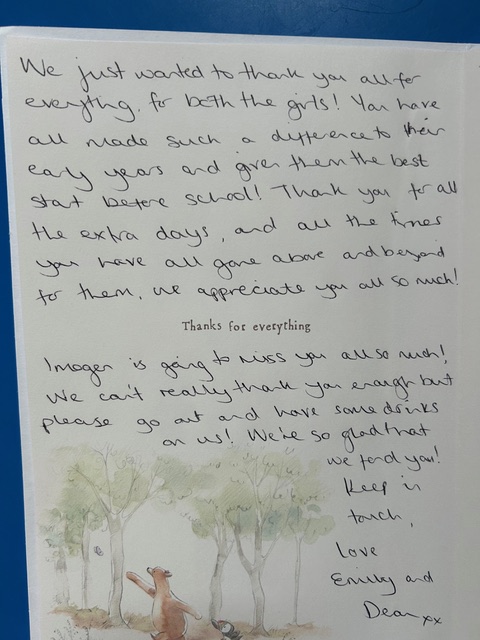 We just wanted to thank you all for
everything, for both the girls! You have
all made such a difference to their
early years and given them the best
start before school! Thank you for all
the extra days, and all the times
you have all gone above and beyond
for them, we appreciate you all so much!
Thanks for everything
Imogen is going to miss you all so much!
We can't really thank you enough but
please go out and have some drinks
on us! We're so glad that
we found you!
Keep in
touch,
Love
Emily and
Dean xx